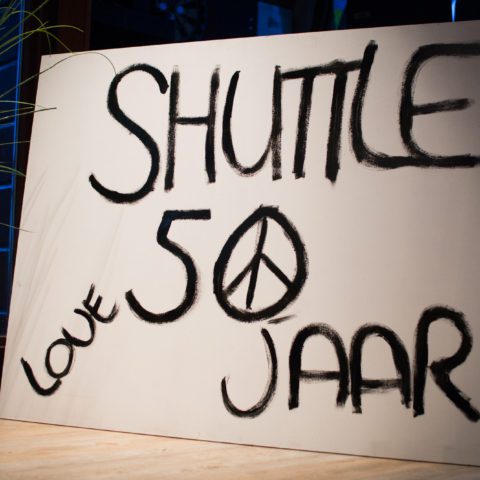 SHUTTLE
50
LOVE
JAAR